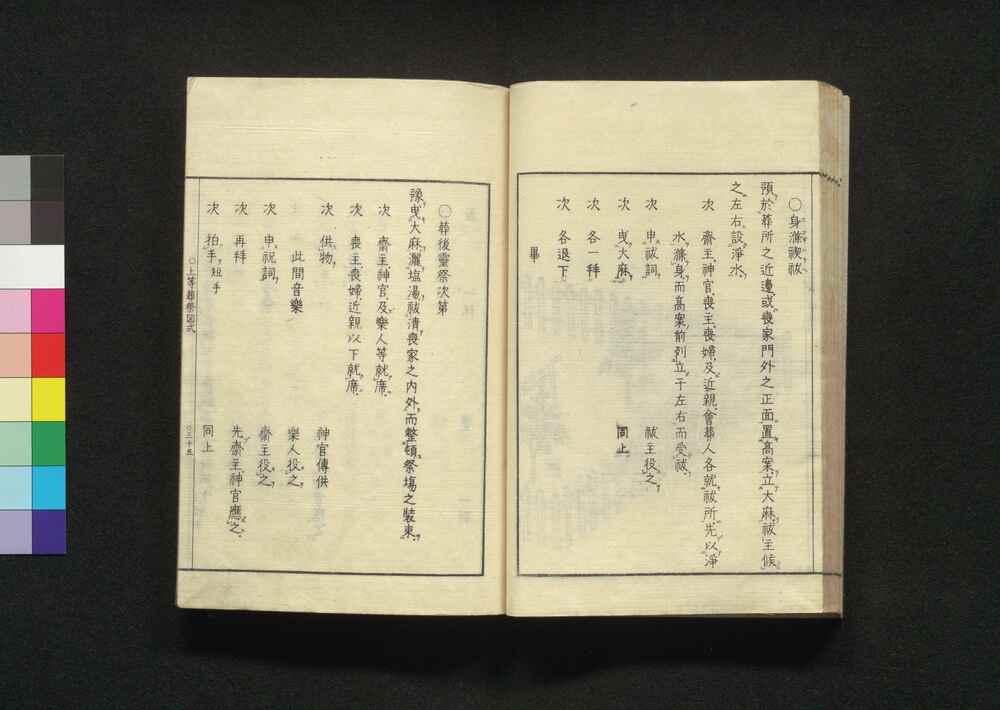 ○身滌禊祓
預於葬所之近邊或喪家門外之正面置高案立大麻祓主候
之左右設淨水
次 齋主神官喪主喪婦及近親會葬人各就祓所先以淨
水滌身而高案前列立于左右而受祓
次 申祓詞 祓主役之
次 曳大麻 同上
次 各一拜
次 各退下
畢
○葬後靈祭次第
豫曳大麻灑塩湯祓清喪家之内外而整頓祭塲之裝束
次 齋主神官及樂人等就席
次 喪主喪婦近親以下就席
次 供物 神官傳供
此間音樂 樂人役之
次 申祝詞 齋主役之
次 再拜 先齋主神官應之
次 拍手短手 同上
○上等葬祭図式
○三十五